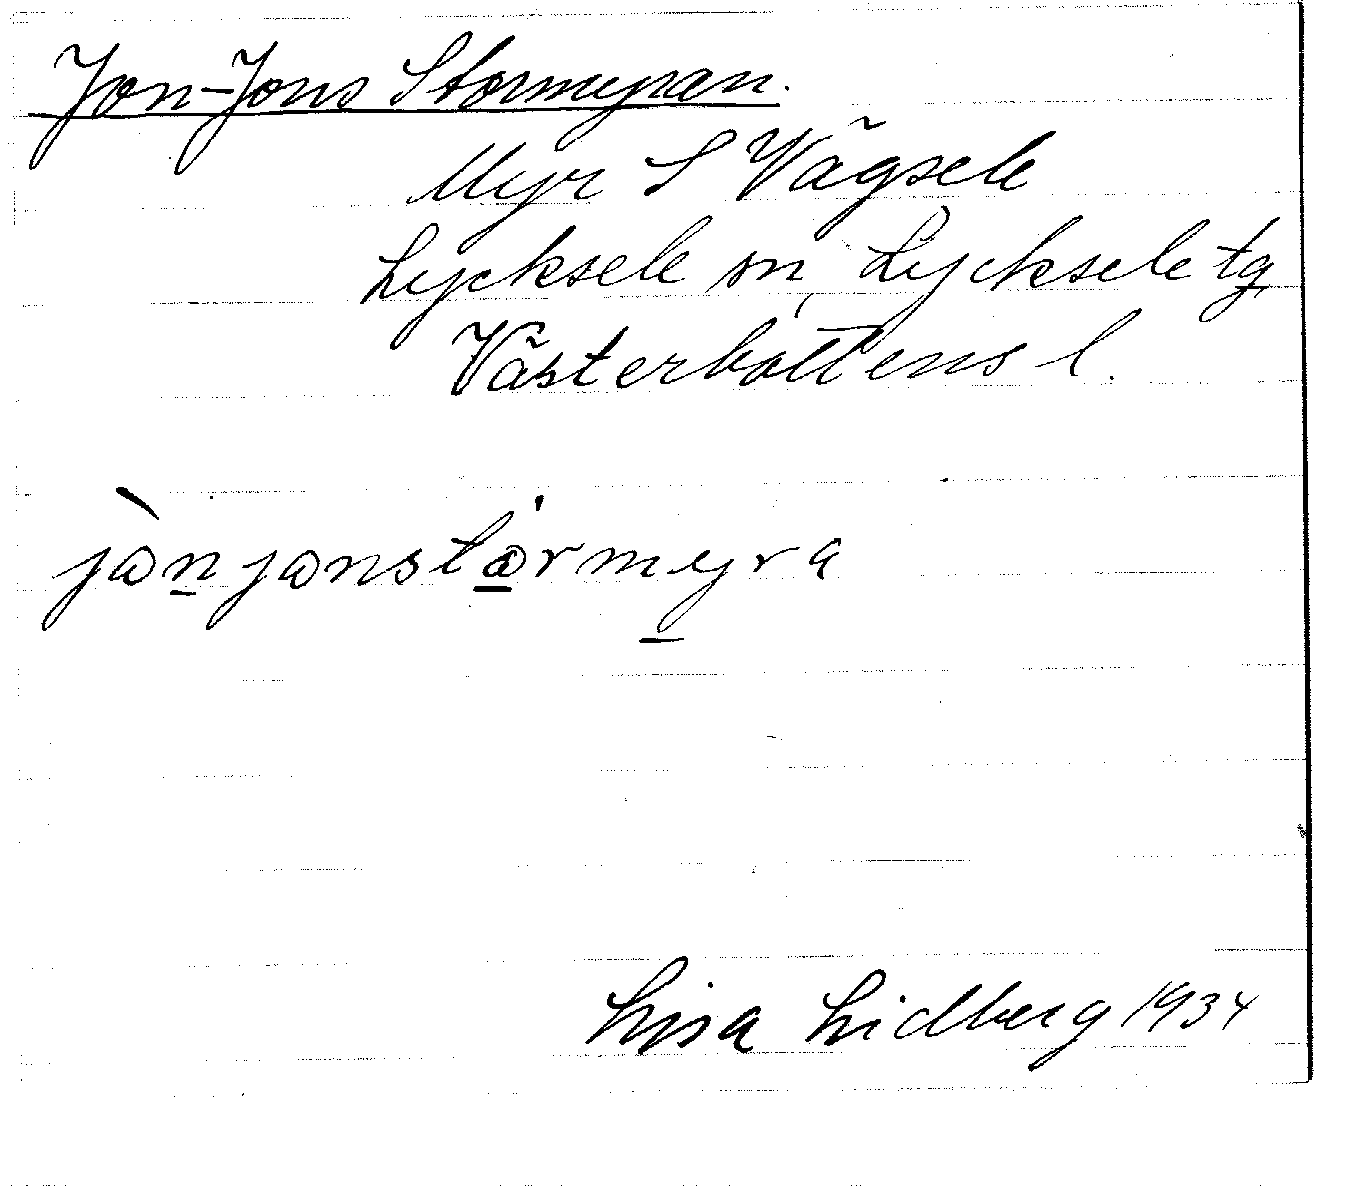 Jon-Jons Stormyran.
Myr S Vägsele
Lycksele sn, Lycksele tg
Västerbottens l.
jònjonstårmyra
Lisa Lidberg 1934